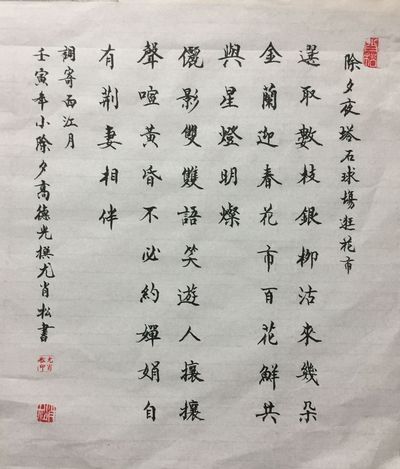 除夕夜塔石球場逛花市
選取數枝銀柳沽來幾朵
金蘭迎春花市百花鮮共
與星燈明燦
儷影雙雙語笑遊人攘攘
聲喧黃昏不必約嬋娟自
有荆妻相伴
詞寄西江月
壬寅年小除夕高德光撰尤肖松書